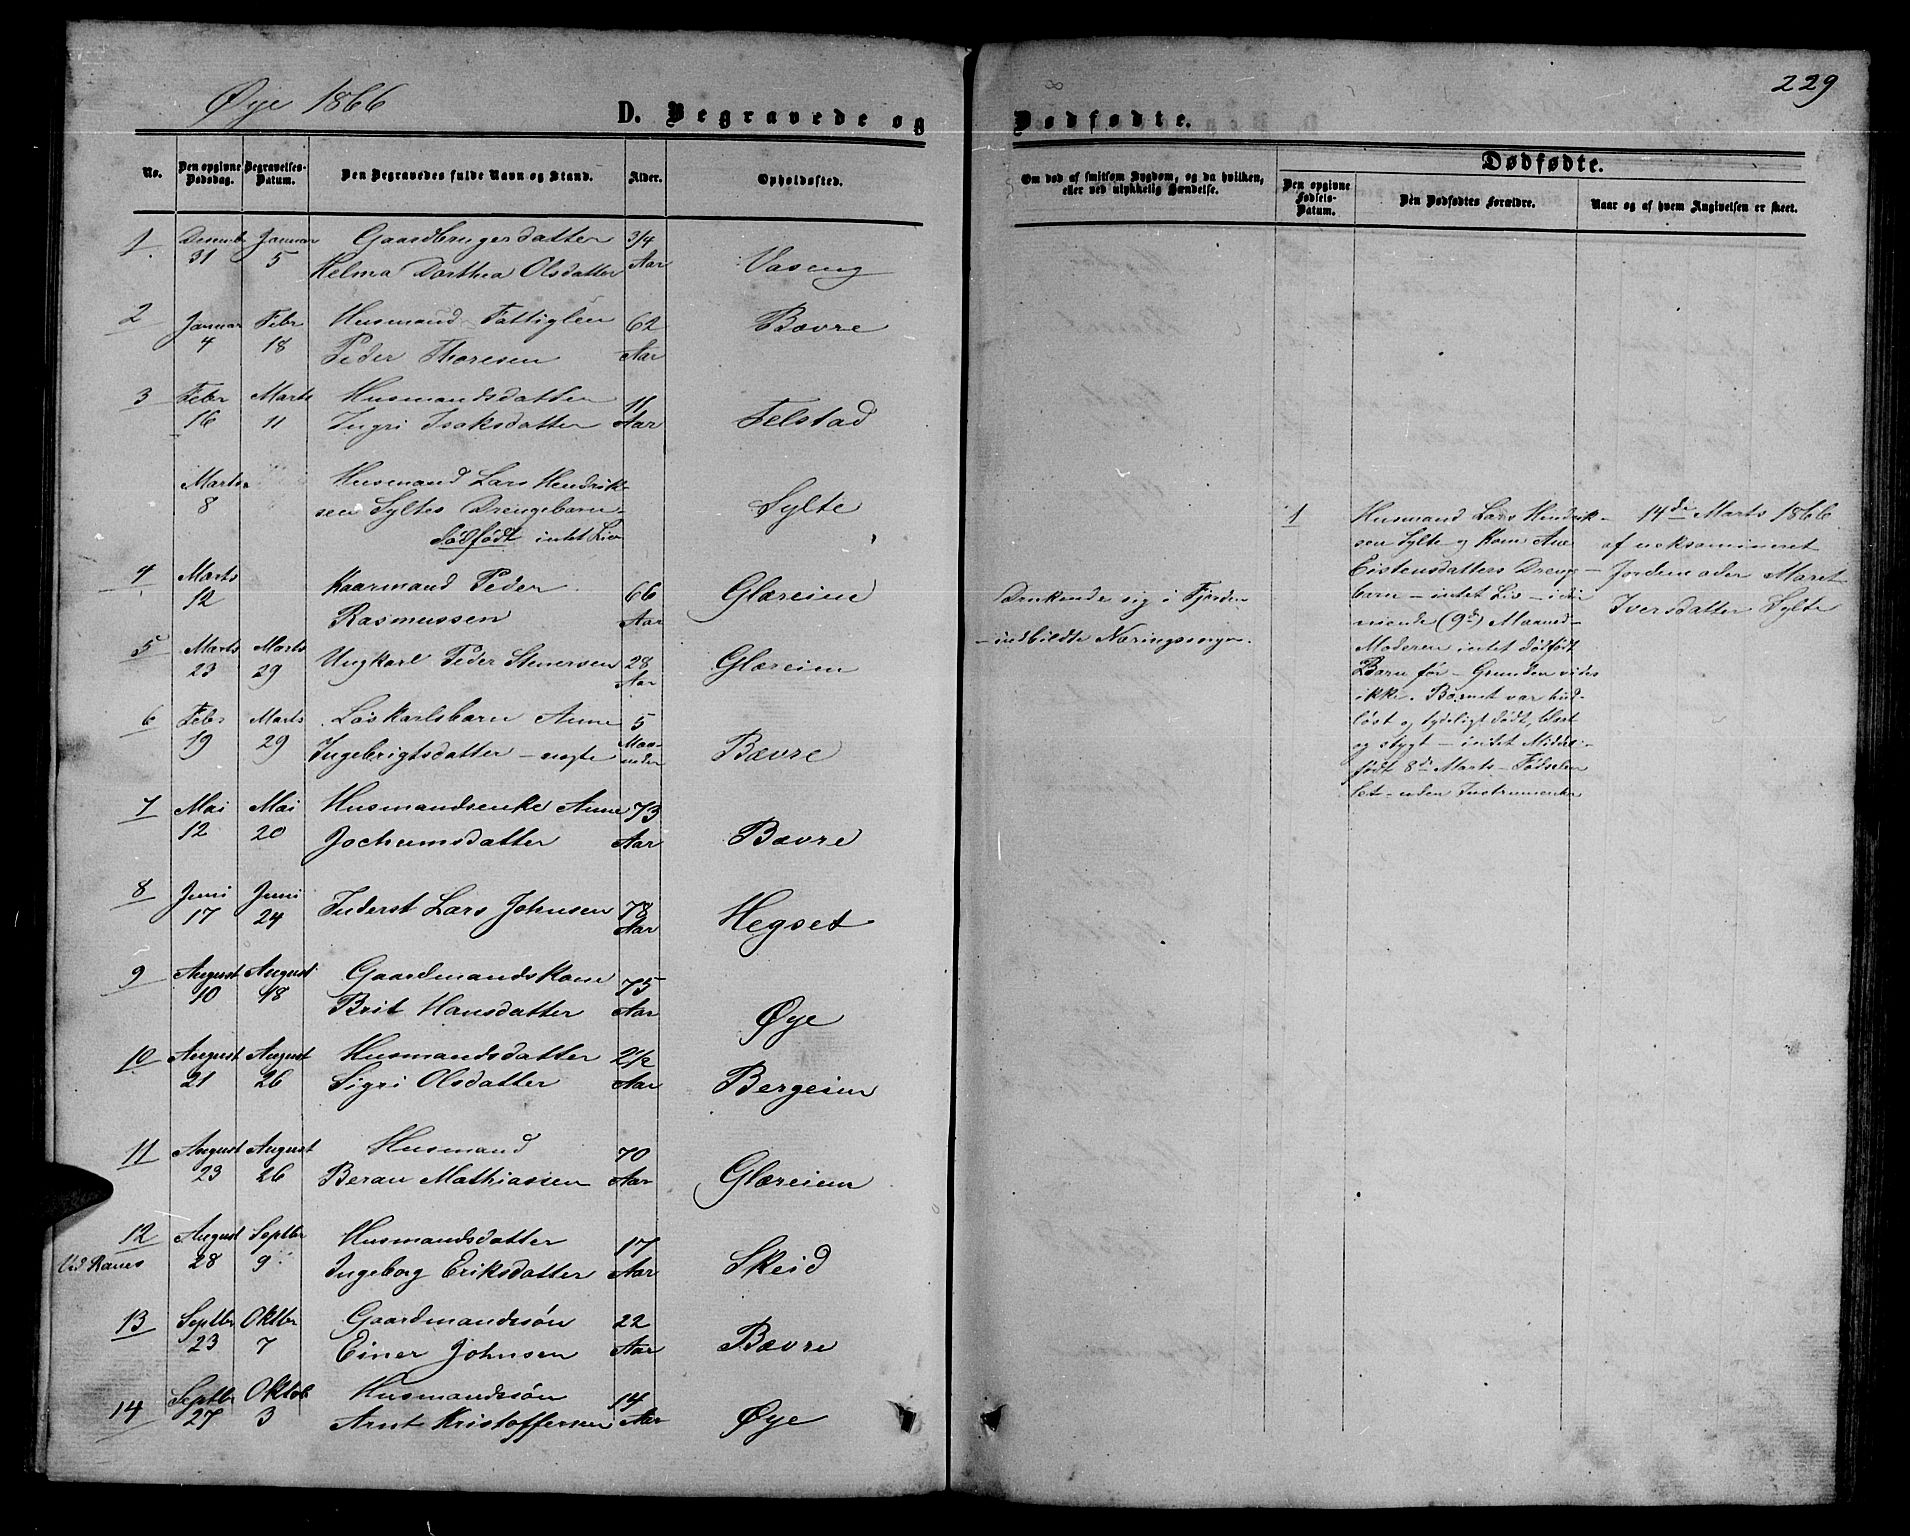 Øye 1866
D. Begravede og
Dødfødte.
229
No.
Den opgivne Dødsdag.
Begravelses-Datum.
Den Begravedes fulde Navn og Stand.
Alder.
Opholdssted.
Om død af smitsom Sygdom, og da hvilken,
eller ved ulykkelig Hændelse.
Dødfødte.
Den opgivne Fødsels-Datum.
Den Dødfødtes Forældre.
Naar og af hvem Angivelsen er skeet.
1 Decemb Januar Gaardbrugerdatter 3/4
31 5 Helma Dorthea Olsdatter Aar Vaseng
2 Januar Febr Husmand Fattiglem 62 Bævre
4 18 Peder Thoresen Aar
3 Febr Marts Husmandsdatter 11
16 11 Ingri Isaksdatter Aar Telstad
Marts Husmand Lars Hendrik-
8 sen Syltes Drengebarn Sylte
dødfødt intet Liv
4 Marts Kaarmand Peder 66 Glæreim
12 Rasmussen Aar
Druknede sig i Fjorden
- indbildte Næringssorger.
5 Marts Marts Ungkarl Peder Stenersen 28 Glæreim
23 29 Aar
6 Febr Marts Løskarlsbarn Anne 5
19 29 Ingebrigtsdatter - uægte Maaneder Bævre
7 Mai Mai Husmandsenke Anne 73
12 20 Jochumsdatter Aar Bævre
8 Juni Juni Inderst Lars Johnsen 78 Hegset
17 24 Aar
9 August August Gaardmandskone 75
10 18 Brit Hansdatter Aar Øye
10 August August Husmandsdatter 2 1/2
21 26 Sigri Olsdatter Aar Bergeim
11 August August Husmand 70
23 26 Beran Mathiassen Aar Glæreim
12 August Septbr Husmandsdatter 17
Ved Ranes 28 9 Ingeborg Eriksdatter Aar Skeid
13 Septbr Oktbr Gaardmandssøn 22
23 7 Einer Johnsen Aar Bævre
14 Septbr Oktob Husmandssøn 14
27 3 Arnt Kristoffersen Aar Øye
1 Husmand Lars Hendrik-
sen Sylte og Kone Ane
Eistensdatters Drenge-
barn - intet Liv - i
niende (9de) Maaned -
Moderen intet dødfødt
Barn før - Grunden vides
ikke. Barnet var hud-
løst og tydeligt dødt, blert
og stygt - intet
født 8de Marts - Fødselen
let - uden Instrumenter
14de Marts 1866
af ueksamineret
Jordemoder Maret
Iversdatter Sylte